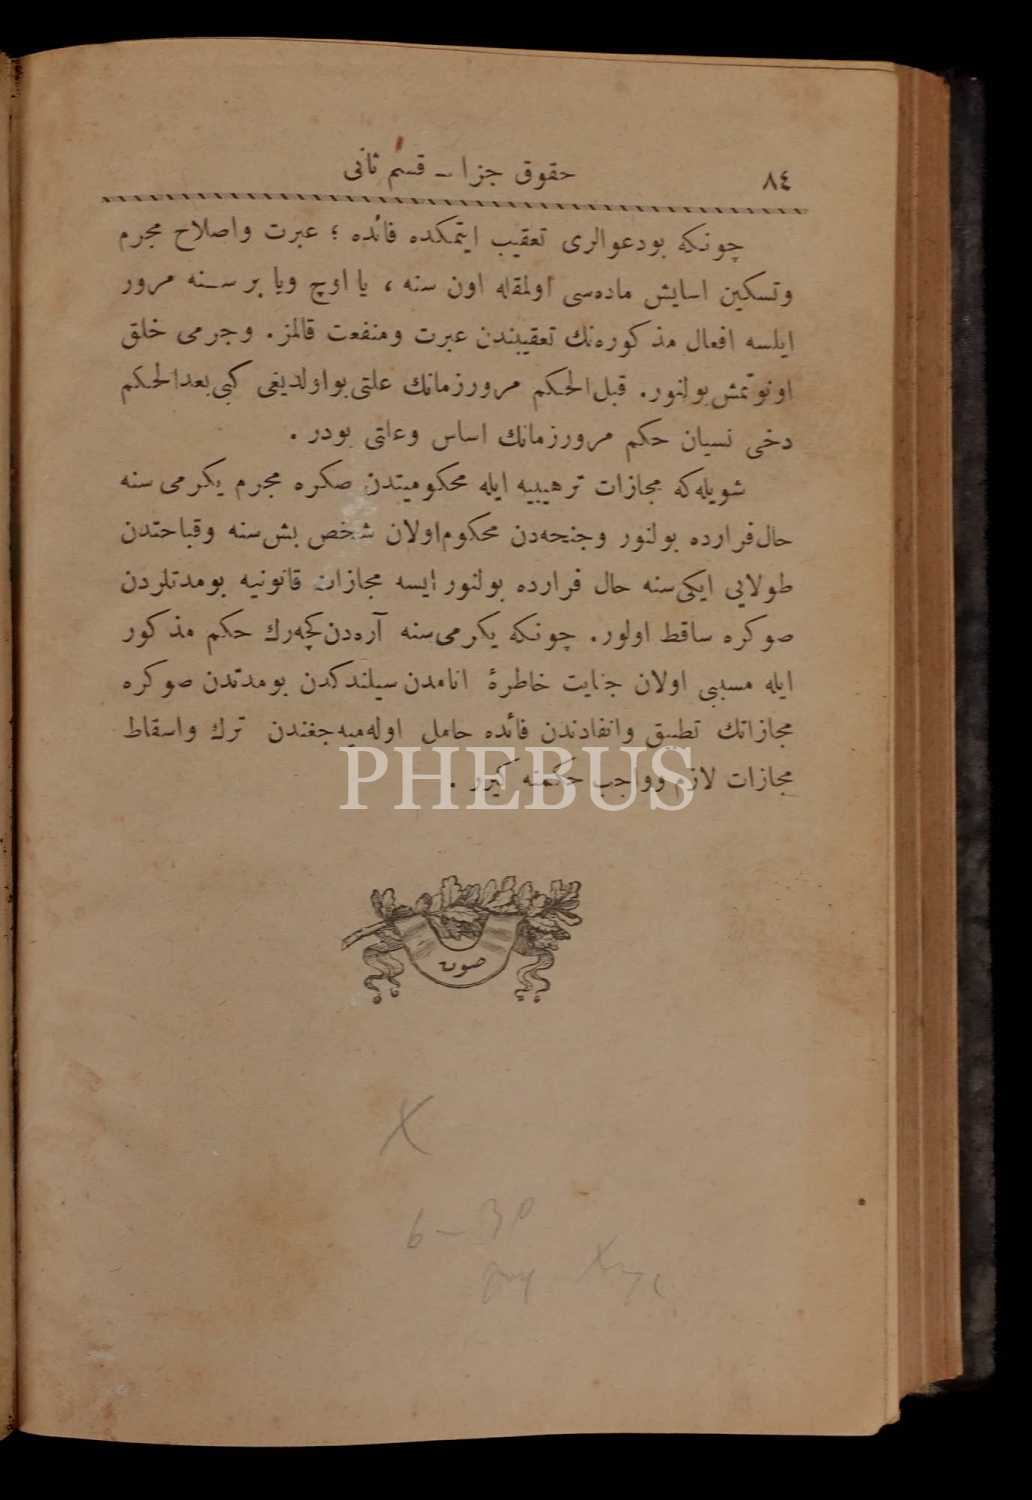 ٨٤
حقوق جزا ـ قسم ثانی
چونكه بودعوالری تعقیب ایتمكده فائده ؛ عبرت واصلاح مجرم
وتسكین اسایش مادەسی اولمقله اون سنه ، یا اوچ ویا بر سـنه مرور
ایلسه افعال مذكورەنك تعقیبندن عبرت ومنفعت قالمز. وجرمی خلق
اونوتمش بولنور. قبل الحكم مرورزمانك علتی بواولدیغی كبی بعدالحكم
دخی نسیان حكم مرورزمانك اساس وعلتی بودر .
شویلەكه مجازات ترهیبیه ایله محكومیتدن صكره مجرم یكرمی سنه
حال فرارده بولنور وجنحەدن محكوم اولان شخص بش سنه وقباحتدن
طولایی ایكی سنه حال فرارده بولنور ایسه مجازات قانونیه بومدتلردن
صوكره ساقط اولور. چونكه یكرمی سنه آرەدن كچەرك حكم مذكور
ایله مسببی اولان جنایت خاطرۀ انامدن سیلندكدن بومدتدن صوكره
مجازاتك تطبیق وانفادندن فائده حاصل اولەمیەجغندن ترك واسقاط
مجازات لازم وواجب حكمنه كیرر .
PHEBUS
صوك
X
6 - 30